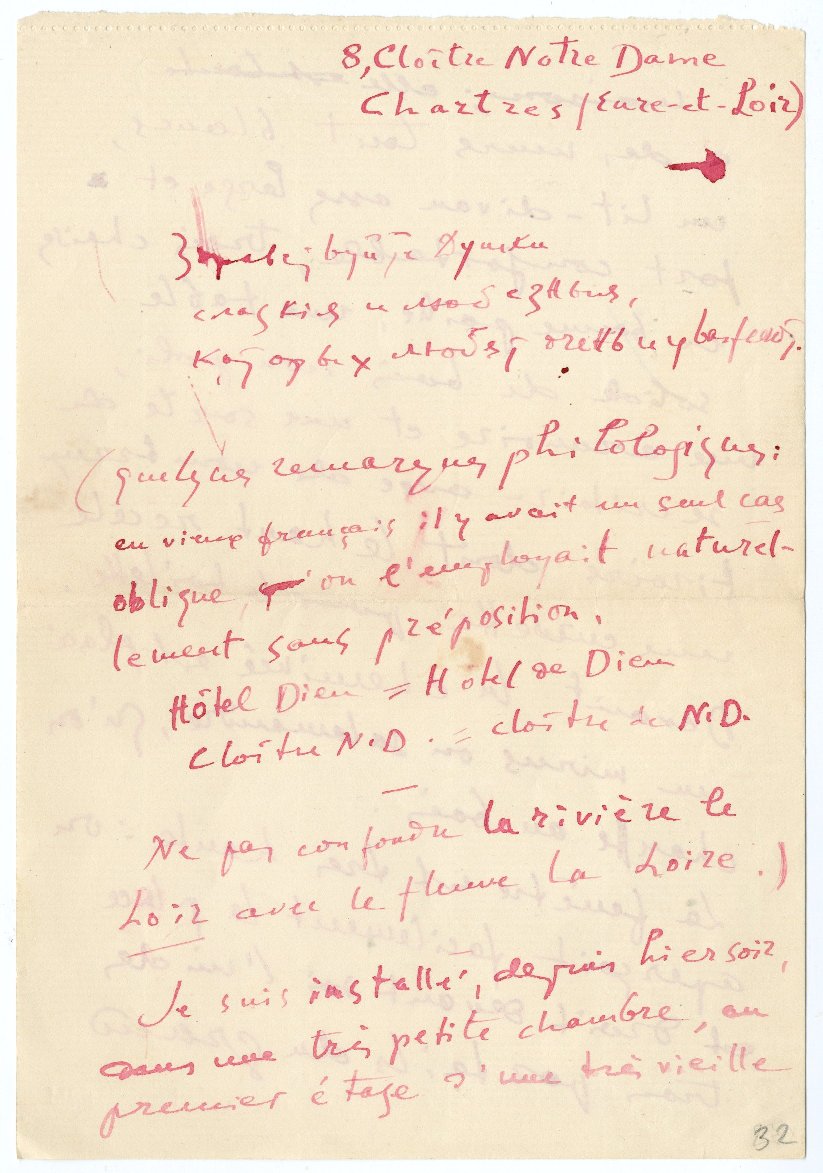 8, Cloître Notre Dame
Chartres (Eure-et-Loir)
Здравствуйте Душки
сладкия и любезныя,
которых люблю очень и
(quelques remarques philologiques:
en vieux français il y avait un seul cas
oblique, qu'on l'employait naturel-
lement sans préposition.
Hôtel Dieu = Hôtel de Dieu
Cloître N.D. = cloître de N.D.
Ne pas confondre la rivière le
Loir avec le fleuve la Loire.)
Je suis installé, depuis hier soir,
dans une très petite chambre, au
premier étage d'une très vieille
32